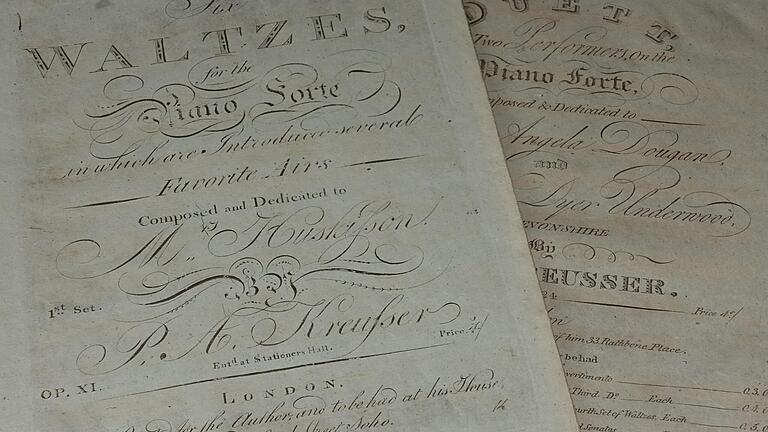 Six
WALTZES,
for the
Piano Forte
in which are Introduced several
Favorite Airs
Composed and Dedicated to
Mrs. Huskisson.
BY
P. A. Kreuſser
1st Set.
Entd. at Stationers Hall.
Price 4/
OP. XI.
LONDON.
for the Author, and to be had at his House
Street Soho.
DUETT,
Two Performers, on the
Piano Forte,
Composed & Dedicated to
Angela Dougan,
AND
Dyer Underwood,
DEVONSHIRE
By
EUSSER.
24
Price 4/
of him 33 Rathbone Place.
be had
Divertimento
Third. Do. Each
Fourth Set of Waltzes, Each
Sonatas